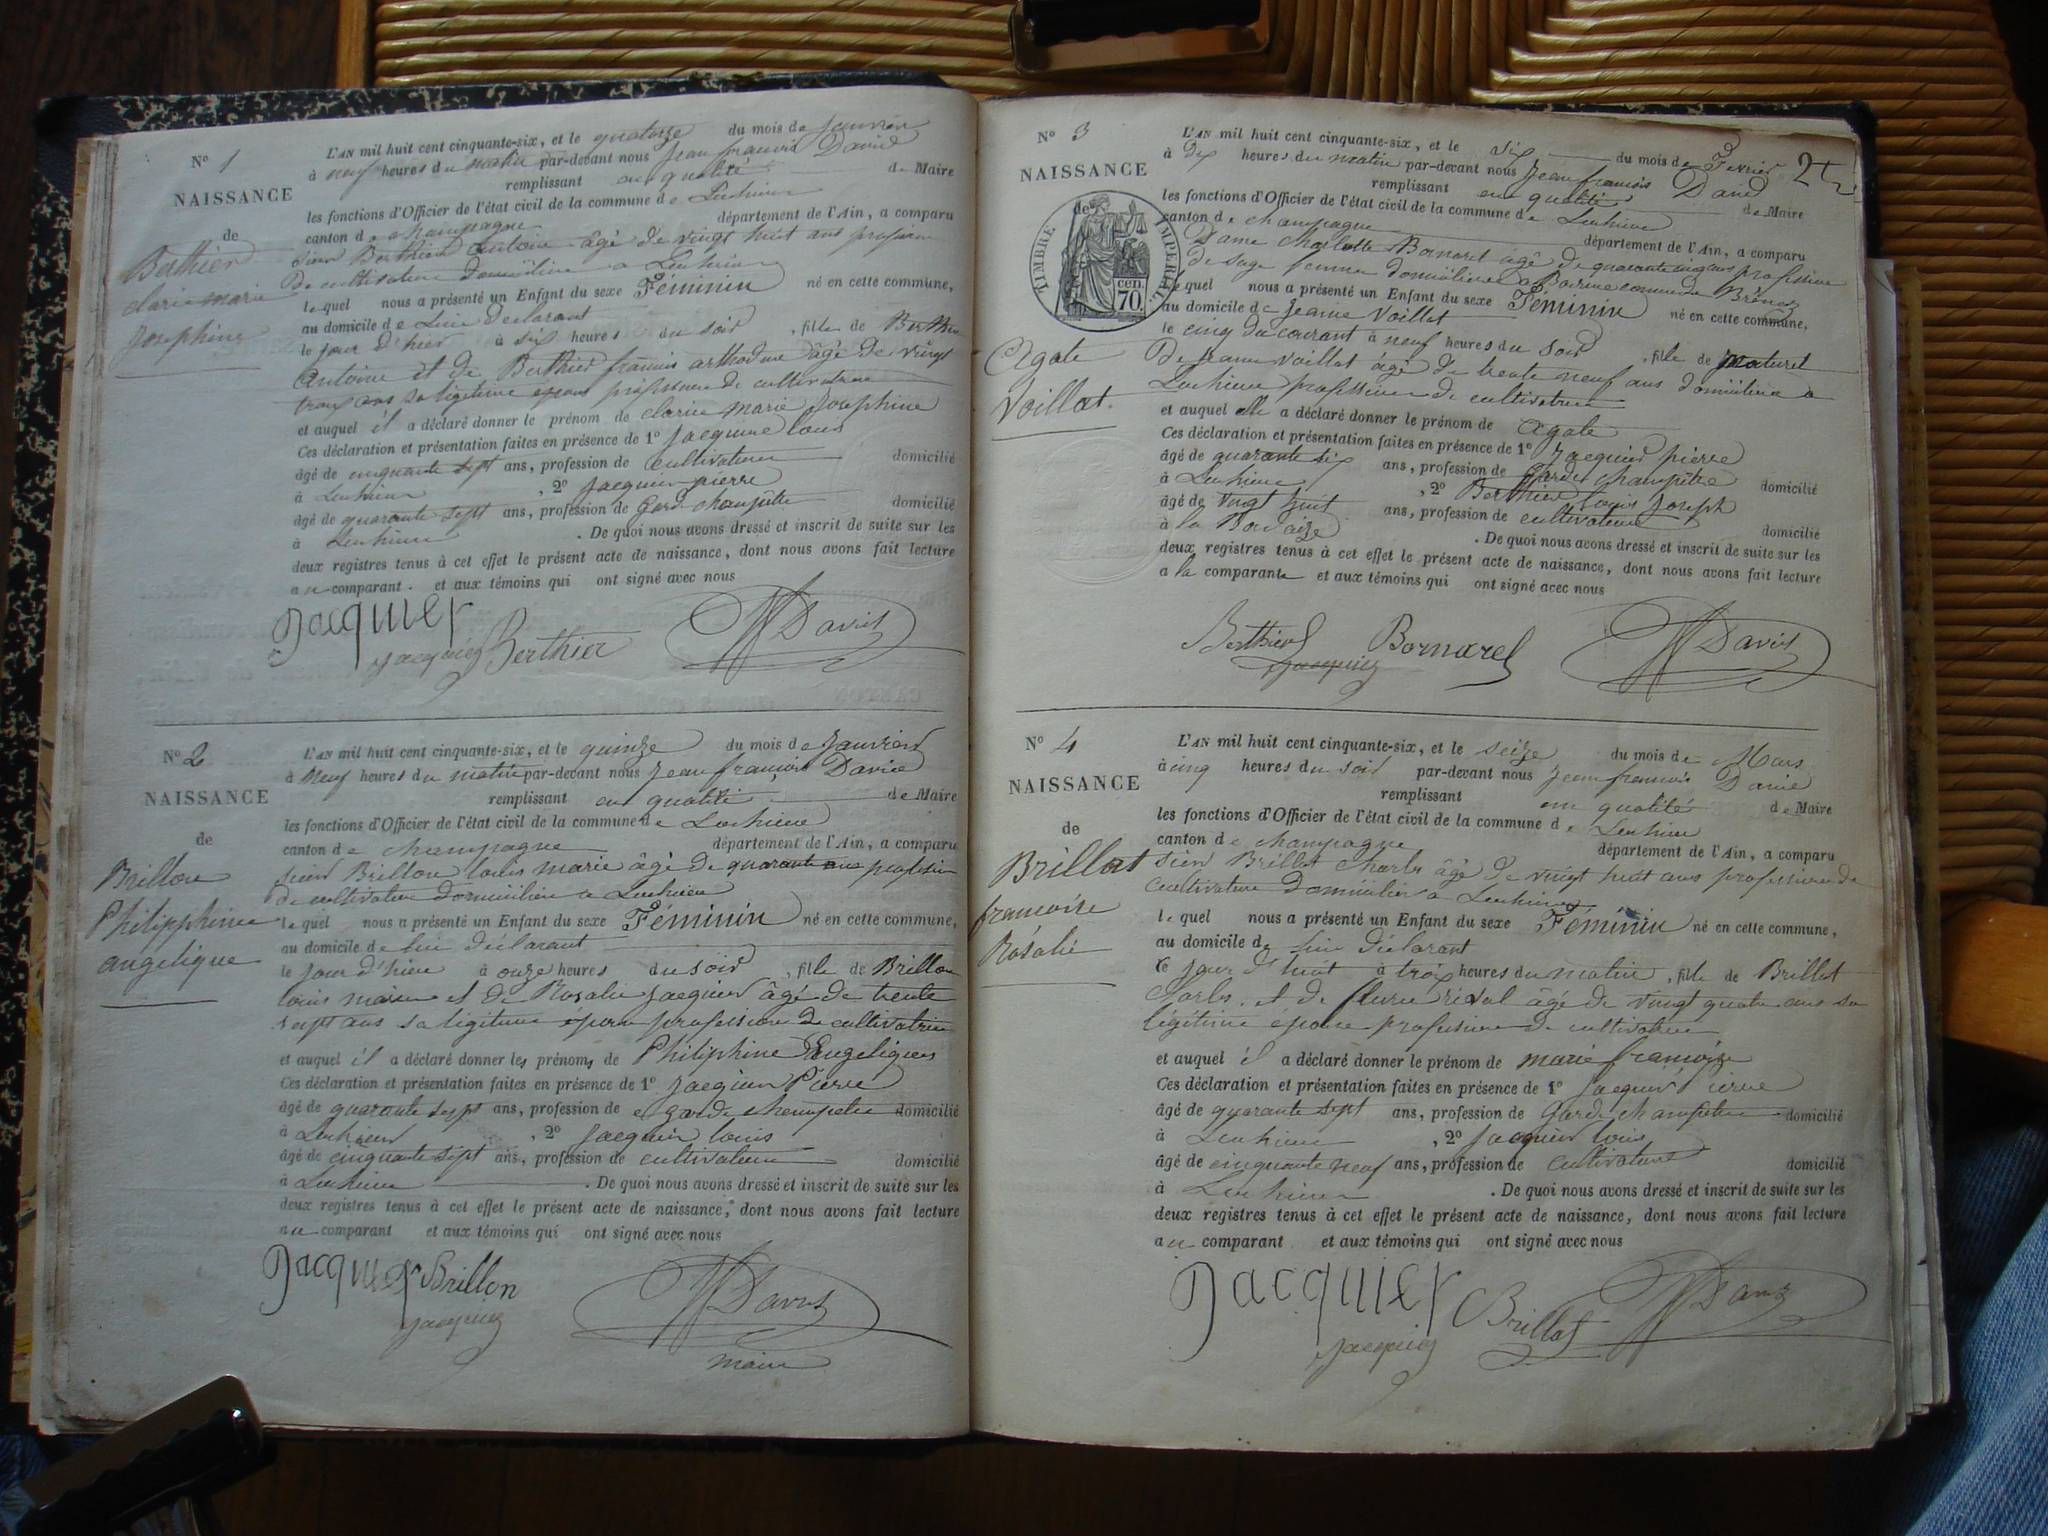 N° 1
NAISSANCE
de
Berthier
clarie marie
Josephine
L'AN mil huit cent cinquante-six, et le quatorze du mois de Janvier
à neuf heures du matin par-devant nous Jean francois David
remplissant en qualité de Maire
les fonctions d'Officier de l'état civil de la commune de Luthieu
canton de champagne département de l'Ain, a comparu
sieur Berthier Antoine âgé de vingt huit ans profession
de cultivateur domicilier a Luthieu
le quel nous a présenté un Enfant du sexe Féminin né en cette commune,
au domicile de Luie declarant
le jour d'hier à six heures du soir, fille de Berthier
Antoine et de Berthier francois âgé de vingt
trois ans sa ligitime épouse profession de cultivatrice
et auquel il a déclaré donner le prénom de clarie marie Josephine
Ces déclaration et présentation faites en présence de 1° Jacquier louis
âgé de cinquante sept ans, profession de cultivateur domicilié
à Luthieu, 2° Jacquier pierre
âgé de quarante sept ans, profession de Gard champêtre domicilié
à Luthieu. De quoi nous avons dressé et inscrit de suite sur les
deux registres tenus à cet effet le présent acte de naissance, dont nous avons fait lecture
au comparant. et aux témoins qui ont signé avec nous
Jacquier
Jacquier Berthier David
N° 2
NAISSANCE
de
Brillon
Philipphine
angelique
L'AN mil huit cent cinquante-six, et le quinze du mois de Janvier
à neuf heures du matin par-devant nous Jean francois David
remplissant en qualité de Maire
les fonctions d'Officier de l'état civil de la commune de Luthieu
canton de champagne département de l'Ain, a comparu
sieur Brillon louis marie âgé de quarante ans profession
de cultivateur domicilier a Luthieu
le quel nous a présenté un Enfant du sexe Féminin né en cette commune,
au domicile de lui declarant
le jour d'hier à onze heures du soir, fille de Brillon
louis marie et de Rosalie Jacquier âgé de trente
sept ans sa ligitime épouse profession de cultivatrice
et auquel il a déclaré donner les prénoms de Philiphine Engelique
Ces déclaration et présentation faites en présence de 1° Jacquier Pierre
âgé de quarante sept ans, profession de garde champetre domicilié
à Luthieu, 2° Jacquier louis
âgé de cinquante sept ans, profession de cultivateur domicilié
à Luthieu. De quoi nous avons dressé et inscrit de suite sur les
deux registres tenus à cet effet le présent acte de naissance, dont nous avons fait lecture
au comparant et aux témoins qui ont signé avec nous
Jacquier Brillon David
Jacquier
maire
N° 3
NAISSANCE
de
TIMBRE IMPERIAL
70 cen.
Agate
Voillat.
L'AN mil huit cent cinquante-six, et le six du mois de Fevrier
à dix heures du matin par-devant nous Jean francois David
remplissant en qualité de Maire
les fonctions d'Officier de l'état civil de la commune de Luthieu
canton de champagne département de l'Ain, a comparu
Dame charlotte Bornarel âgé de quarante cinq ans profession
de sage femme domicilier a commune de Brénaz
le quel nous a présenté un Enfant du sexe Féminin né en cette commune,
au domicile de Jeanne Voillat
le cinq du courant à neuf heures du soir, fille de naturel
De Jeanne Voillat âgé de trente neuf ans domicilier a
Luthieu profession de cultivatrice
et auquel elle a déclaré donner le prénom de Agate
Ces déclaration et présentation faites en présence de 1° Jacquier pierre
âgé de quarante six ans, profession de Garde champêtre domicilié
à Luthieu, 2° Berthier louis Joseph
âgé de vingt huit ans, profession de cultivateur domicilié
à la. De quoi nous avons dressé et inscrit de suite sur les
deux registres tenus à cet effet le présent acte de naissance, dont nous avons fait lecture
a la comparante et aux témoins qui ont signé avec nous
Berthier Bornarel David
Jacquier
N° 4
NAISSANCE
de
Brillat
francoise
Rosalie
L'AN mil huit cent cinquante-six, et le seize du mois de Mars
à cinq heures du soir par-devant nous Jean francois David
remplissant en qualité de Maire
les fonctions d'Officier de l'état civil de la commune de Luthieu
canton de champagne département de l'Ain, a comparu
sieur Brillat charles âgé de vingt huit ans profession de
cultivateur domicilier a Luthieu
le quel nous a présenté un Enfant du sexe Féminin né en cette commune,
au domicile de lui déclarant
le jour d'huit à trois heures du matin, fille de Brillat
charles et de rival âgé de vingt quatre ans sa
légitime épouse profession de cultivatrice
et auquel il a déclaré donner le prénom de marie francoize
Ces déclaration et présentation faites en présence de 1° Jacquier Pierre
âgé de quarante sept ans, profession de Garde champêtre domicilié
à Luthieu, 2° Jacquier louis
âgé de cinquante neuf ans, profession de cultivateur domicilié
à Luthieu. De quoi nous avons dressé et inscrit de suite sur les
deux registres tenus à cet effet le présent acte de naissance, dont nous avons fait lecture
au comparant et aux témoins qui ont signé avec nous
Jacquier Brillat David
Jacquier